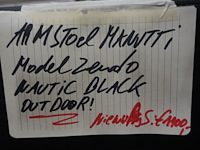 ARMSTOEL MANUTTI
Model Zendo
NAUTIC BLACK
OUTDOOR!